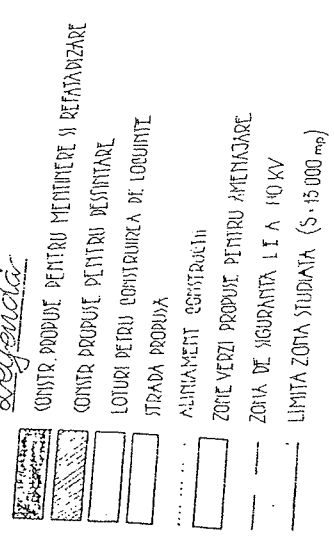 Legenda
CONSTR. PROPUSE PENTRU MENTINERE SI REFATADIZARE
CONSTR PROPUSE PENTRU DESFIINTARE
LOTURI PETRU CONSTRUIREA DE LOCUINTE
STRADA PROPUSA
ALINIAMENT CONSTRUCTII
ZONE VERZI PROPUSE PENTRU AMENAJARE
ZONA DE SIGURANTA LEA 110 KV
LIMITA ZONA STUDIATA (S = 13 000 mp)